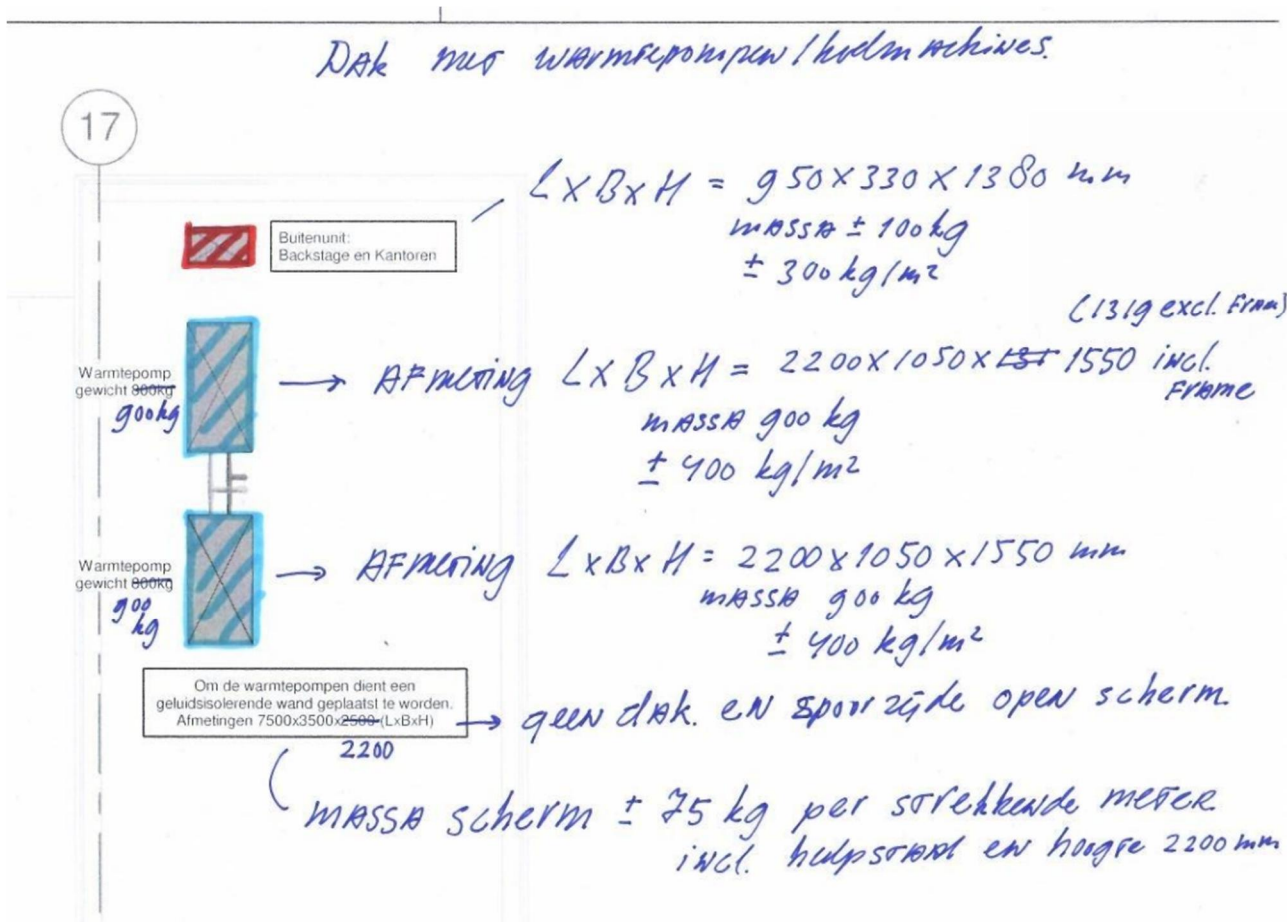 Dak met warmtepompen/koelmachines.
17
Buitenunit:
Backstage en Kantoren
LxBxH = 950x330x1380 mm
massa ± 100kg
± 300 kg/m²
(1319 excl. Fram)
Warmtepomp
gewicht 800kg
900kg
→ Afmeting LxBxH = 2200x1050x131 1550 incl.
Frame
massa 900 kg
± 400 kg/m²
Warmtepomp
gewicht 800kg
900
kg
→ Afmeting LxBxH = 2200x1050x1550 mm
massa 900 kg
± 400 kg/m²
Om de warmtepompen dient een
geluidsisolerende wand geplaatst te worden.
Afmetingen 7500x3500x2500 (LxBxH)
2200
→ geen dak. en spoorzijde open scherm.
massa scherm ± 75 kg per strekkende meter
incl. hulpstaal en hoogte 2200 mm